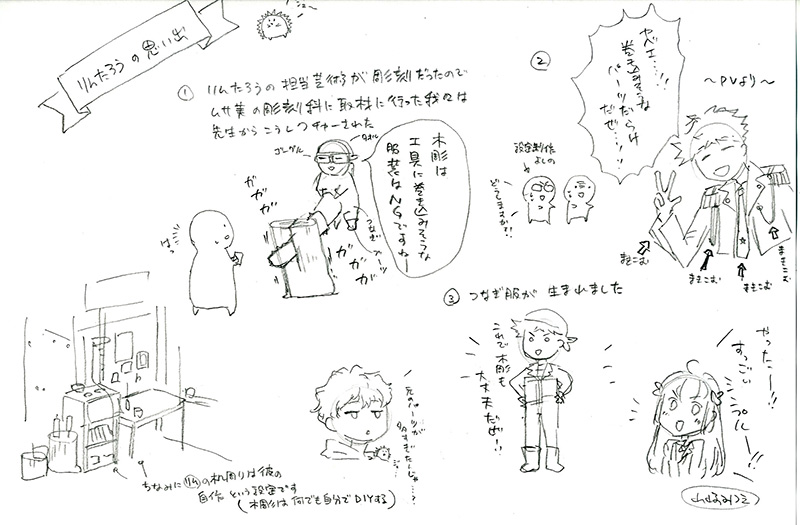 りんたろうの思い出
① りんたろうの担当芸術が彫刻だったので
ムサ美の彫刻科に取材に行った我々は
先生からこうレクチャーされた
ゴーグル
木彫は
工具に巻き込みそうな
服装はNGですねー
つなぎ
ガガガガ
ガガガガ
②
ヤベエ…!!
巻き込みそうな
パーツだらけ
だぜ…!!
〜PVより〜
設定制作
よしの
どうしますか?!
まきこむ
まきこむ
まきこむ
まきこむ
③ つなぎ服が生まれました
これで木彫も
大丈夫だぜ!!
やったー!!
すっごい
シンプルー!!
元のパーツが
多すぎたんじゃ…?
ちなみに りん の机周りは彼の
自作という設定です
(木彫は何でも自分でDIYする)